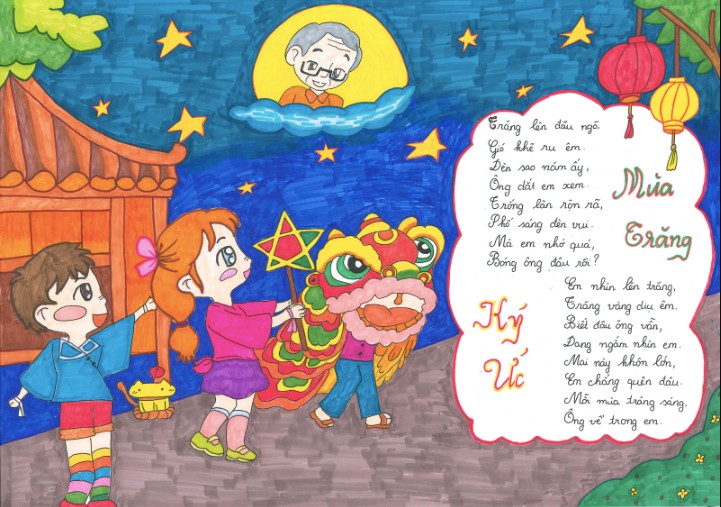 Trăng lên đầu ngõ,
Gió khẽ ru êm.
Đèn sao năm ấy,
Ông dắt em xem.
Trống lân rộn rã,
Phố sáng đèn vui.
Mà em nhớ quá,
Bóng ông đâu rồi?
Mùa
Trăng
Ký
Ức
Em nhìn lên trăng,
Trăng vàng dịu êm.
Biết đâu ông vẫn,
Đang ngắm nhìn em.
Mai này khôn lớn,
Em chẳng quên đâu.
Mỗi mùa trăng sáng,
Ông về trong em.